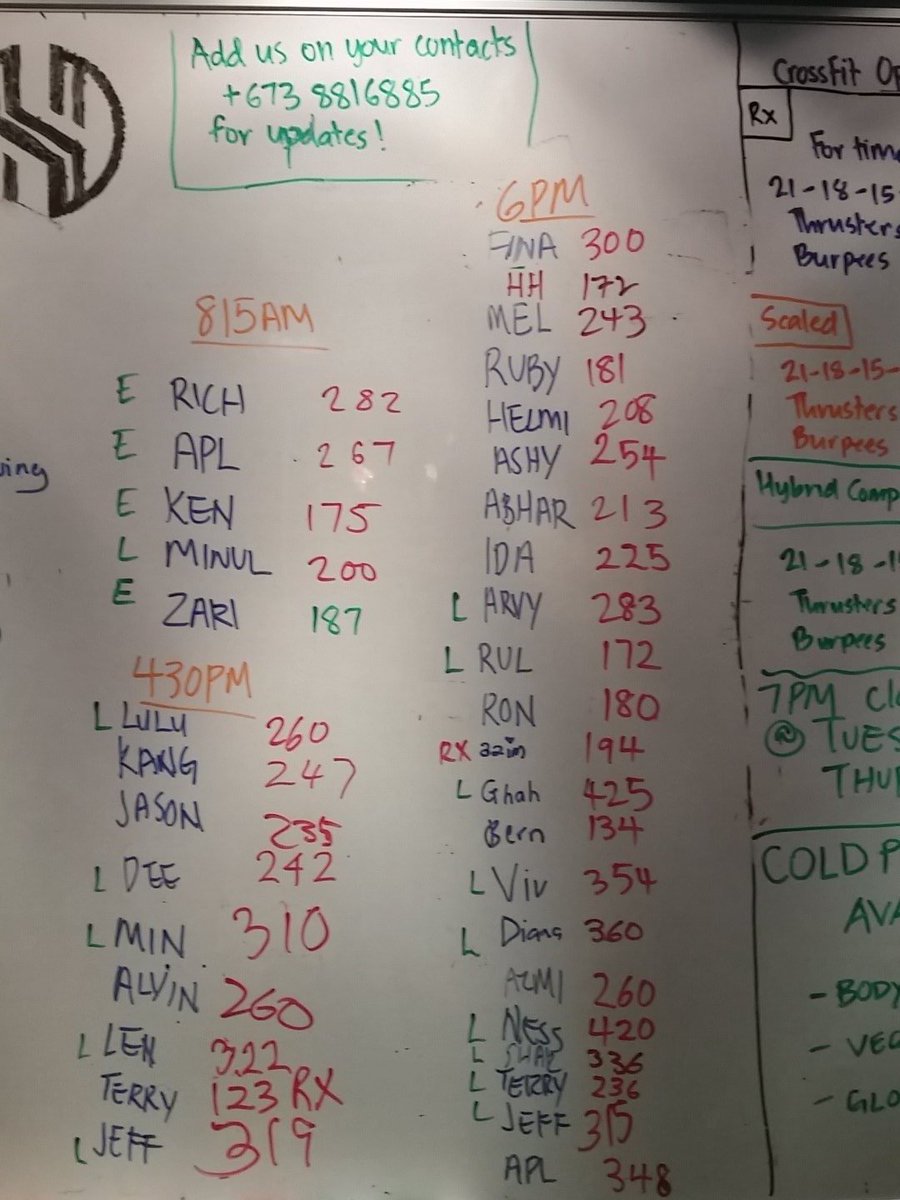 Add us on your contacts
+673 8816885
for updates!
815AM
E RICH 282
E APL 267
E KEN 175
L MINUL 200
E ZARI 187
430PM
L LULU 260
KANG 247
JASON 235
L DEE 242
L MIN 310
ALVIN 260
L LEN 322
TERRY 123 RX
L JEFF 319
6PM
FINA 300
HH 172
MEL 243
RUBY 181
HELMI 208
ASHY 254
ABHAR 213
IDA 225
L ARVY 283
L RUL 172
RON 180
RX zzin 194
L Ghah 425
Bern 134
L Viv 354
L Diana 360
AZMI 260
L NESS 420
L SHAZ 336
L TERRY 236
L JEFF 315
APL 348
CrossFit Op
Rx
For time
21-18-15
Thrusters
Burpees
Scaled
21-18-15-
Thrusters
Burpees
Hybrid Comp
21-18-1
Thrusters
Burpees
7PM Cla
@ TUES
THU
COLD P
AVA
- BODY
- VEG
- GLO